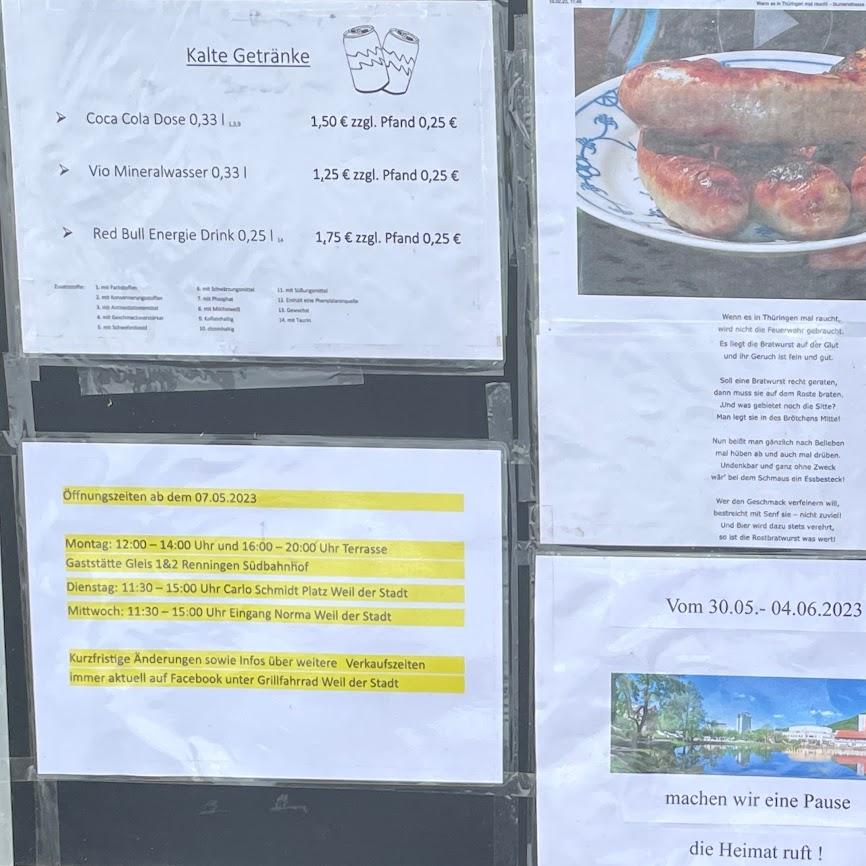 Kalte Getränke
➢ Coca Cola Dose 0,33 l 1,50 € zzgl. Pfand 0,25 €
➢ Vio Mineralwasser 0,33 l 1,25 € zzgl. Pfand 0,25 €
➢ Red Bull Energie Drink 0,25 l 1,75 € zzgl. Pfand 0,25 €
1. mit Farbstoffen
2. mit Konservierungsstoffen
3. mit Antioxidationsmittel
4. mit Geschmacksverstärker
5. mit Schwefeldioxid
6. mit Schwärzungsmittel
7. mit Phosphat
8. mit Milcheiweiß
9. koffeinhaltig
10. chininhaltig
11. mit Süßungsmittel
12. Enthält eine Phenylalaninquelle
13. Gewachst
14. mit Taurin
Öffnungszeiten ab dem 07.05.2023
Montag: 12:00 – 14:00 Uhr und 16:00 – 20:00 Uhr Terrasse
Gaststätte Gleis 1&2 Renningen Südbahnhof
Dienstag: 11:30 – 15:00 Uhr Carlo Schmidt Platz Weil der Stadt
Mittwoch: 11:30 – 15:00 Uhr Eingang Norma Weil der Stadt
Kurzfristige Änderungen sowie Infos über weitere Verkaufszeiten
immer aktuell auf Facebook unter Grillfahrrad Weil der Stadt
Wenn es in Thüringen mal raucht
Wenn es in Thüringen mal raucht,
wird nicht die Feuerwehr gebraucht.
Es liegt die Bratwurst auf der Glut
und ihr Geruch ist fein und gut.
Soll eine Bratwurst recht geraten,
dann muss sie auf dem Roste braten.
Und was gebietet noch die Sitte?
Man legt sie in des Brötchens Mitte!
Nun beißt man gänzlich nach Belieben
mal hüben ab und auch mal drüben.
Undenkbar und ganz ohne Zweck
wär' bei dem Schmaus ein Essbesteck!
Wer den Geschmack verfeinern will,
bestreicht mit Senf sie – nicht zuviel!
Und Bier wird dazu stets verehrt,
so ist die Rostbratwurst was wert!
Vom 30.05.- 04.06.2023
machen wir eine Pause
die Heimat ruft !